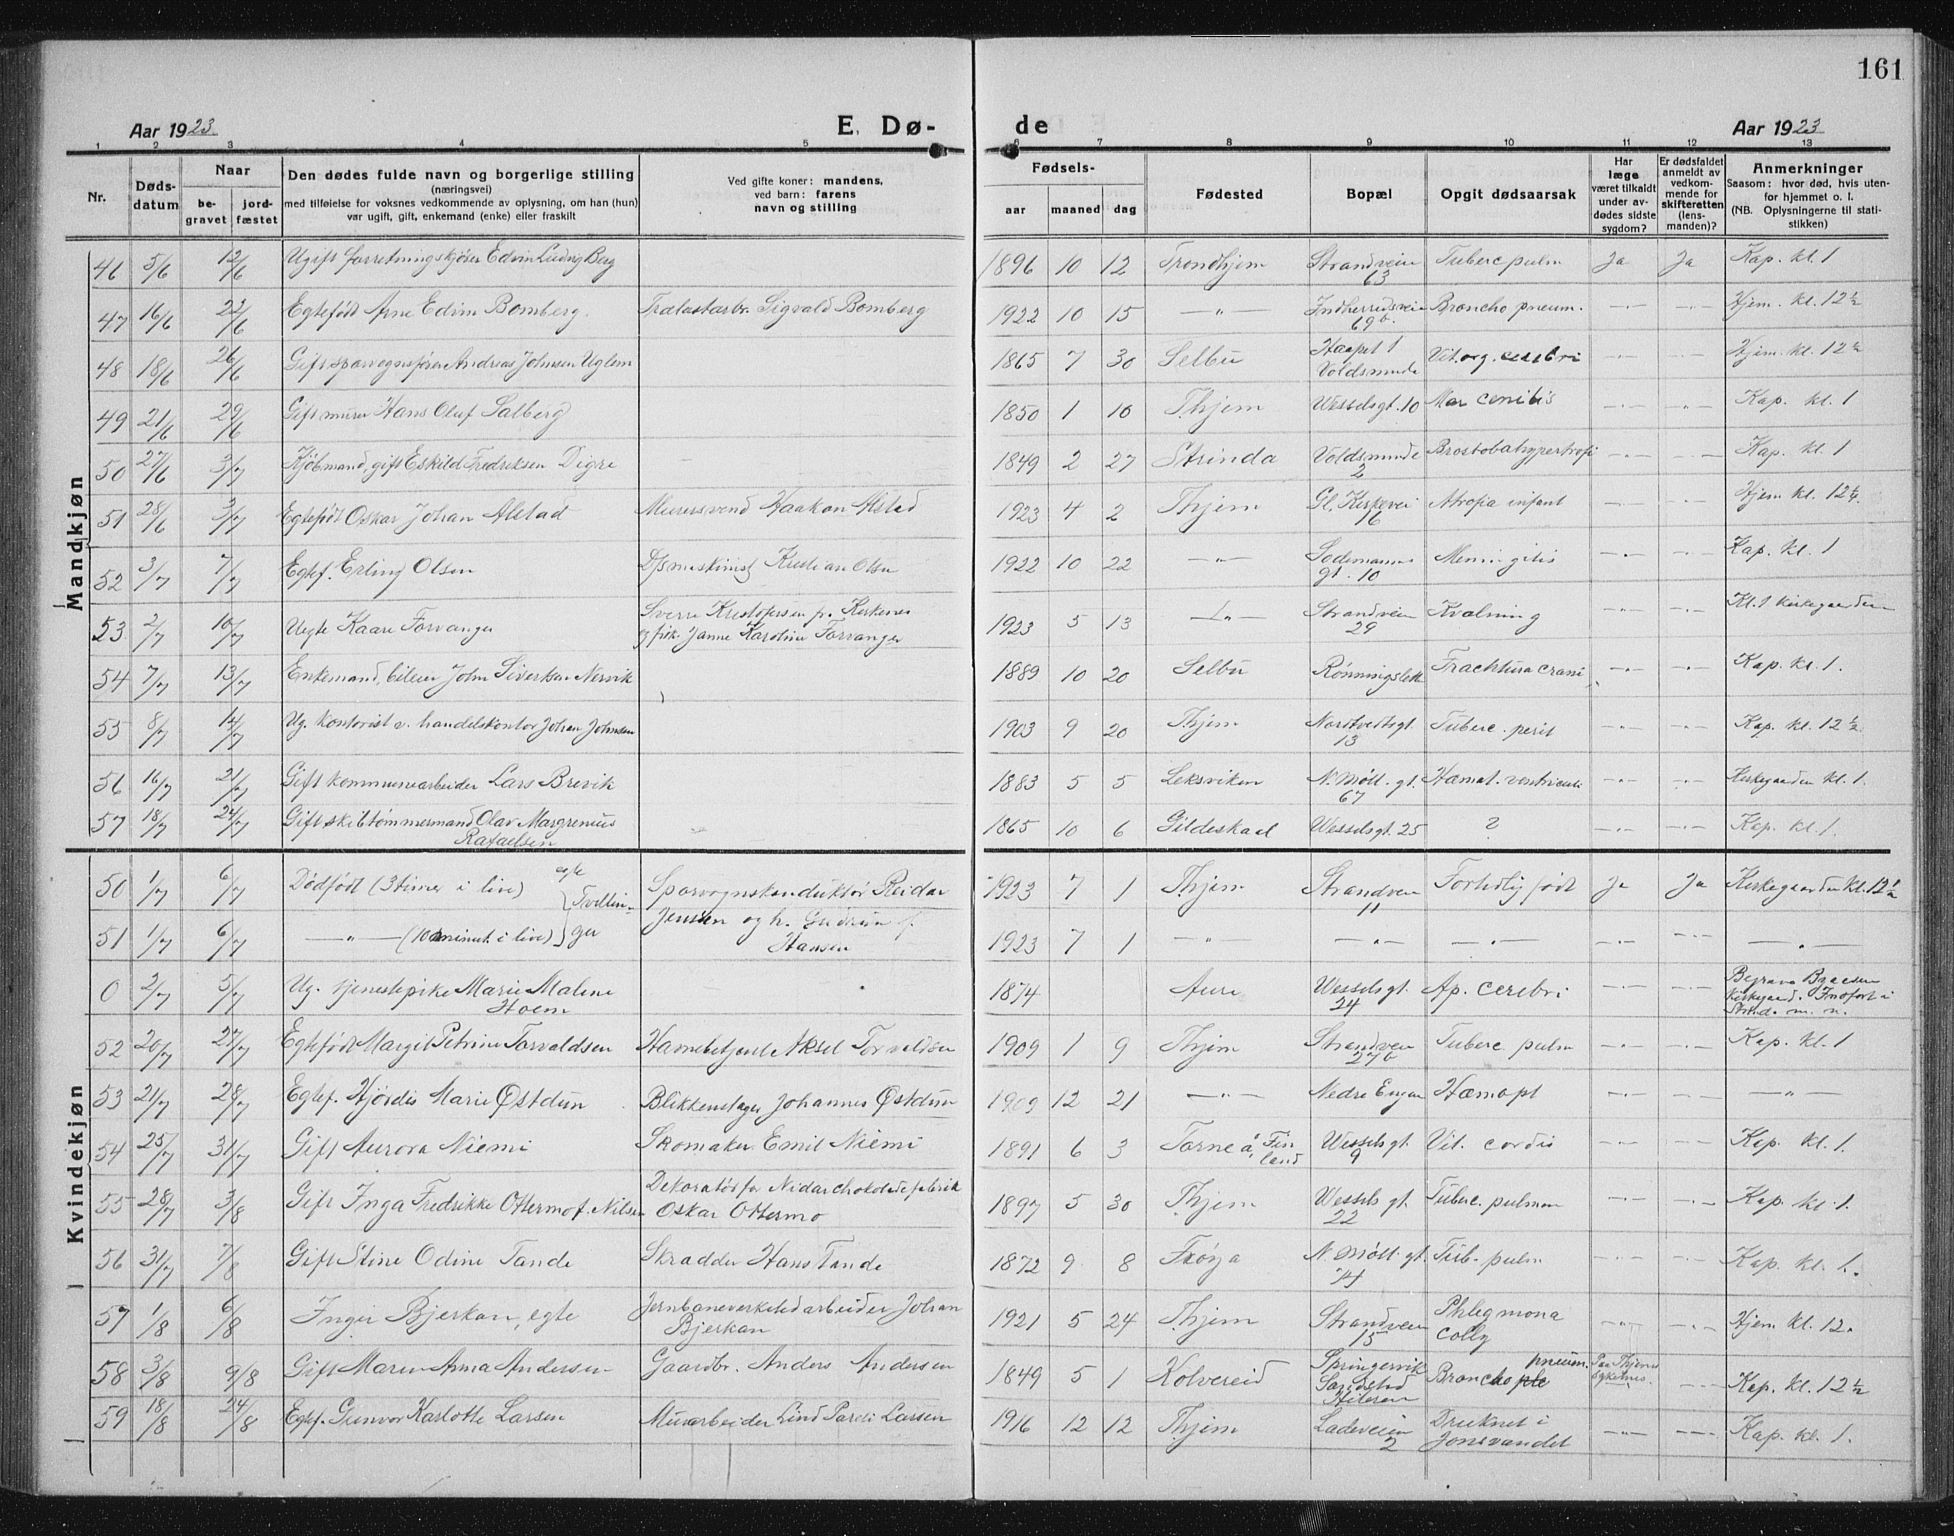 161
Aar 1923
E. Dø-
de
Aar 1923
1 2 3 4 5 6 7 8 9 10 11 12 13
Nr.
Døds-
datum
Naar
be-
gravet
jord-
fæstet
Den dødes fulde navn og borgerlige stilling
(næringsvei)
med tilføielse for voksnes vedkommende av oplysning, om han (hun)
var ugift, gift, enkemand (enke) eller fraskilt
Ved gifte koner: mandens,
ved barn: farens
navn og stilling
Fødsels-
aar
maaned
dag
Fødested
Bopæl
Opgit dødsaarsak
Har
læge
været tilkaldt
under av-
dødes sidste
sygdom?
Er dødsfaldet
anmeldt av
vedkom-
mende for
skifteretten
(lens-
manden)?
Anmerkninger
Saasom: hvor død, hvis uten-
for hjemmet o. l.
(NB. Oplysningerne til stati-
stikken)
Mandkjøn
46 5/6 12/6 Ugift forretningskjører Edvin Ludvig Berg 1896 10 12 Trondhjem Strandveien 63 Tuberc pulm Ja Ja Kap. kl. 1
47 16/6 22/6 Egtefødt Arne Edvin Bomberg Trælastarbr. Sigvald Bomberg 1922 10 15 —"— Indherredsveien 69b. Broncho pneum. —"— —"— Hjem. kl. 12 ½
48 18/6 26/6 Gift sporvognsfører Andreas Johnsen Uglem 1865 7 30 Selbu Voldsminde Vit. org. cerebri —"— —"— Hjem. kl. 12 ½
49 21/6 29/6 Gift murer Hans Oluf Salberg 1850 1 10 Thjem Wesselsgt. 10 —"— —"— Kap. kl. 1
50 27/6 3/7 Kjøbmand, gift Eskild Fredriksen Digre 1849 2 27 Strinda Voldsminde 2 Brostobahypertrofi —"— —"— Kap. kl. 1
51 28/6 3/7 Egtefødt Oskar Johan Alstad Murersvend Haakon Alstad 1923 4 2 Thjem Gl. Kirkevei 16 Atrofia infant —"— —"— Hjem kl. 12 ½
52 3/7 7/7 Egtef. Erling Olsen Dsmaskinist Kristian Olsen 1922 10 22 —"— Sodemanns gt. 10 Meningitis —"— —"— Kap. kl. 1
53 2/7 10/7 Uegte Kaare Forvanger Sverre Kristofersen fr. Kirkenes
og frk. Janna Karoline Forvanger 1923 5 13 —"— Strandveien 29 Kvælning —"— —"— Kl. 1 kirkegaarden
54 7/7 13/7 Enkemand, bileier John Sivertsen Nervik 1889 10 20 Selbu Rønningslett Frachtura crani —"— —"— Kap. kl. 1.
55 8/7 14/7 Ug. kontorist v. handelskontor Johan Johnsen 1903 9 20 Thjem Nordtvedtsgt. 13 Tuberc. perit —"— —"— Kap. kl. 12 ½
56 16/7 21/7 Gift kommunearbeider Lars Brevik 1883 5 5 Leksviken N. Møll. gt. 67 Hæmat. ventriculi —"— —"— Kirkegaarden kl. 1.
57 18/7 24/7 Gift skibtømmermand Olav Margrenius
Rafaelsen 1865 10 6 Gildeskaal Wesselsgt. 25 ? —"— —"— Kap. kl. 1.
Kvindekjøn
50 1/7 6/7 Dødfødt (3 timer i live) egte Tvillin- Sporvognskonduktør Reidar 1923 7 1 Thjem Strandveien 11 Fortidlig født Ja Ja Kirkegaarden kl. 12 ½
51 1/7 6/7 —"— (10 minut. i live) ger Jensen og h. Gudrun f.
Hansen 1923 7 1 —"— —"— —"— —"— —"— —"—
0 2/7 5/7 Ug. tjenestepike Marie Malene
Hoem 1874 Aure Wesselsgt. 24 Ap. cerebri —"— —"— Begrave Baaesen
Kirkegaard. Indført i
Strinda m. n.
52 20/7 27/7 Egtefødt Margit Petrine Torvaldsen Havnebetjent Aksel Torvaldsen 1909 1 9 Thjem Strandveien 27b Tuberc pulm —"— —"— Kap. kl. 1
53 21/7 28/7 Egtef. Hjørdis Marie Østdun Blikkenslager Johannes Østdun 1909 12 21 —"— Nedre Engen Hæmopt —"— —"— —"—
54 25/7 31/7 Gift Aurora Niemi Skomaker Emil Niemi 1891 6 3 Torneå, Fin-
land Wesselsgt. 9 Vit. cordis —"— —"— Kap. kl. 1.
55 28/7 3/8 Gift Inga Fredrikke Ottermo f. Nilsen Dekoratør for Nidar chokoladefabrik
Oskar Ottermo 1897 5 30 Thjem Wessels gt. 22 Tuberc. pulmon —"— —"— Kap. kl. 1.
56 31/7 7/8 Gift Stine Odine Tande Skrædder Hans Tande 1872 9 8 Frøya N. Møll. gt. Tub. pulm —"— —"— Kap. kl. 1.
57 1/8 6/8 Inger Bjerkan, egte Jernbaneverkstedarbeider Johan
Bjerkan 1921 5 24 Thjem Strandveien 15 Phlegmona
colly —"— —"— Hjem kl. 12.
58 3/8 9/8 Gift Maren Anna Andersen Gaardbr. Anders Andersen 1849 5 1 Kolvereid Springervik Broncho pneum. Paa Thjems
sykehus. —"— Kap. kl. 12 ½
59 18/8 24/8 Egtef. Gunvor Karlotte Larsen Murarbeider Lind Pareli Larsen 1916 12 12 Thjem Ladeveien 2 Druknet i
Jonsvandet —"— —"— Kap. kl. 1.